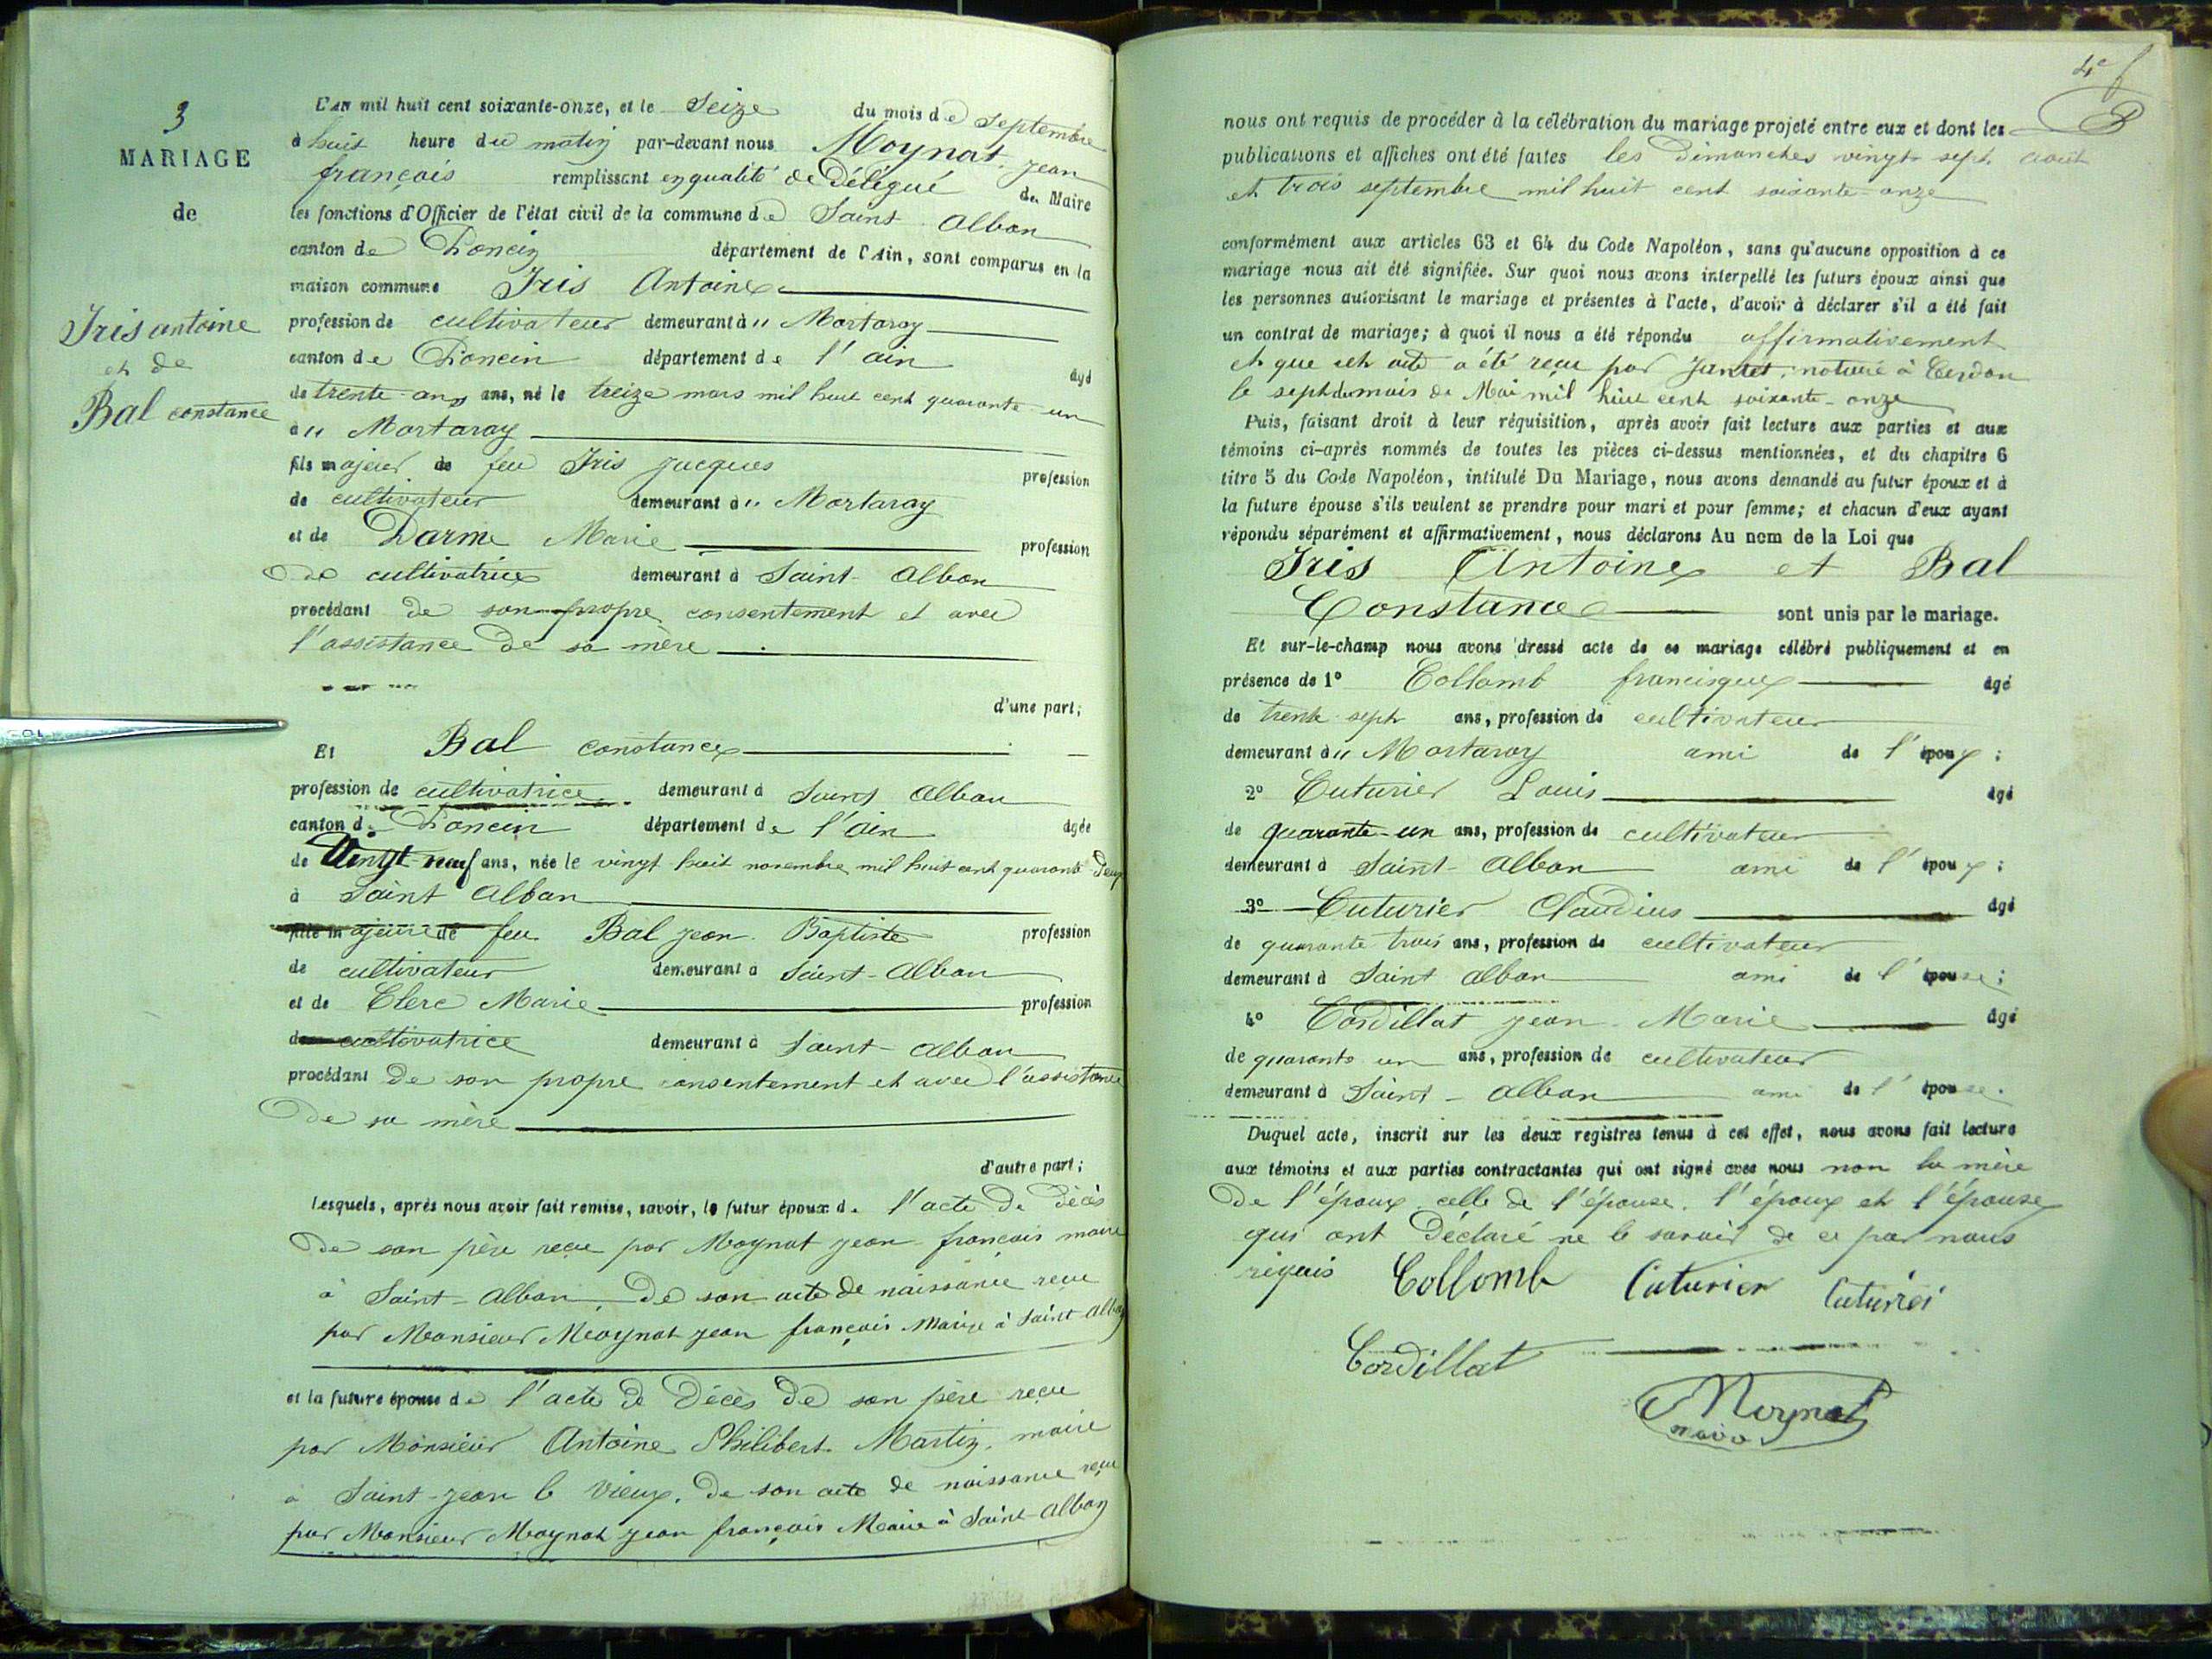 3
MARIAGE
de
Iris antoine
et de
Bal constance
L'an mil huit cent soixante-onze, et le Seize du mois de septembre
à huit heure du matin par-devant nous Moynat jean
françois remplissant en qualité de Délégué du Maire
les fonctions d'Officier de l'état civil de la commune de Saint Alban
canton de Poncin département de l'Ain, sont comparus en la
maison commune Iris Antoine
profession de cultivateur demeurant à " Mortaray
canton de Poncin département de l'ain âgé
de trente ans ans, né le treize mars mil huit cent quarante un
à " Mortaray
fils majeur de feu Iris jacques profession
de cultivateur demeurant à " Mortaray
et de Darme Marie profession
de cultivatrice demeurant à Saint-Alban
procédant de son propre consentement et avec
l'assistance de sa mère
d'une part;
Et Bal constance
profession de cultivatrice demeurant à Saint Alban
canton de Poncin département de l'ain âgée
de Vingt neuf ans, née le vingt huit novembre mil huit cent quarante deux
à Saint Alban
fille majeure de feu Bal jean Baptiste profession
de cultivateur demeurant à Saint-Alban
et de Clerc Marie profession
de cultivatrice demeurant à Saint-Alban
procédant de son propre consentement et avec l'assistance
de sa mère
d'autre part;
Lesquels, après nous avoir fait remise, savoir, le futur époux de l'acte de décès
de son père reçu par Moynat jean-françois maire
à Saint-Alban, de son acte de naissance reçu
par Monsieur Moynat jean françois Maire à Saint-Alban
et la future épouse de l'acte de Décès de son père reçu
par Monsieur Antoine Philibert Martin, maire
à Saint-jean le Vieux. de son acte de naissance reçu
par Monsieur Moynat jean françois Maire à Saint-Alban
4e
nous ont requis de procéder à la célébration du mariage projeté entre eux et dont les
publications et affiches ont été faites les Dimanches vingt sept août
et trois septembre mil huit cent soixante-onze
conformément aux articles 63 et 64 du Code Napoléon, sans qu'aucune opposition à ce
mariage nous ait été signifiée. Sur quoi nous avons interpellé les futurs époux ainsi que
les personnes autorisant le mariage et présentes à l'acte, d'avoir à déclarer s'il a été fait
un contrat de mariage; à quoi il nous a été répondu affirmativement
et que cet acte a été reçu par Jantet notaire à Cerdon
le sept du mois de Mai mil huit cent soixante-onze
Puis, faisant droit à leur réquisition, après avoir fait lecture aux parties et aux
témoins ci-après nommés de toutes les pièces ci-dessus mentionnées, et du chapitre 6
titre 5 du Code Napoléon, intitulé Du Mariage, nous avons demandé au futur époux et à
la future épouse s'ils veulent se prendre pour mari et pour femme; et chacun d'eux ayant
répondu séparément et affirmativement, nous déclarons Au nom de la Loi que
Iris Antoine et Bal
Constance sont unis par le mariage.
Et sur-le-champ nous avons dressé acte de ce mariage célébré publiquement et en
présence de 1° Collomb francisque âgé
de trente-sept ans, profession de cultivateur
demeurant à " Mortaray ami de l'époux;
2° Cuturier Louis âgé
de quarante-un ans, profession de cultivateur
demeurant à Saint-Alban ami de l'époux;
3° Cuturier Claudius âgé
de quarante trois ans, profession de cultivateur
demeurant à Saint alban ami de l'épouse;
4° Cordillat jean-Marie âgé
de quarante un ans, profession de cultivateur
demeurant à Saint-Alban ami de l'épouse.
Duquel acte, inscrit sur les deux registres tenus à cet effet, nous avons fait lecture
aux témoins et aux parties contractantes qui ont signé avec nous non la mère
de l'époux celle de l'épouse. l'époux et l'épouse
qui ont Déclaré ne le savoir de ce par nous
requis Collomb Cuturier Cuturier
Cordillat
Moynat